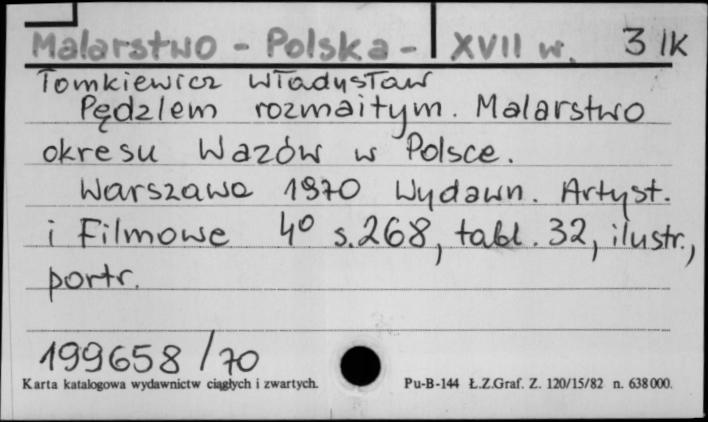 Malarstwo - Polska - XVII w. 3 IK
Tomkiewicz Władysław
Pędzlem rozmaitym. Malarstwo
okresu Wazów w Polsce.
Warszawa 1970 Wydawn. Artyst.
i Filmowe 4° s.268, tabl. 32, ilustr.,
portr.
199658/70
Karta katalogowa wydawnictw ciągłych i zwartych. Pu-B-144 Ł.Z.Graf. Z. 120/15/82 n. 638000.